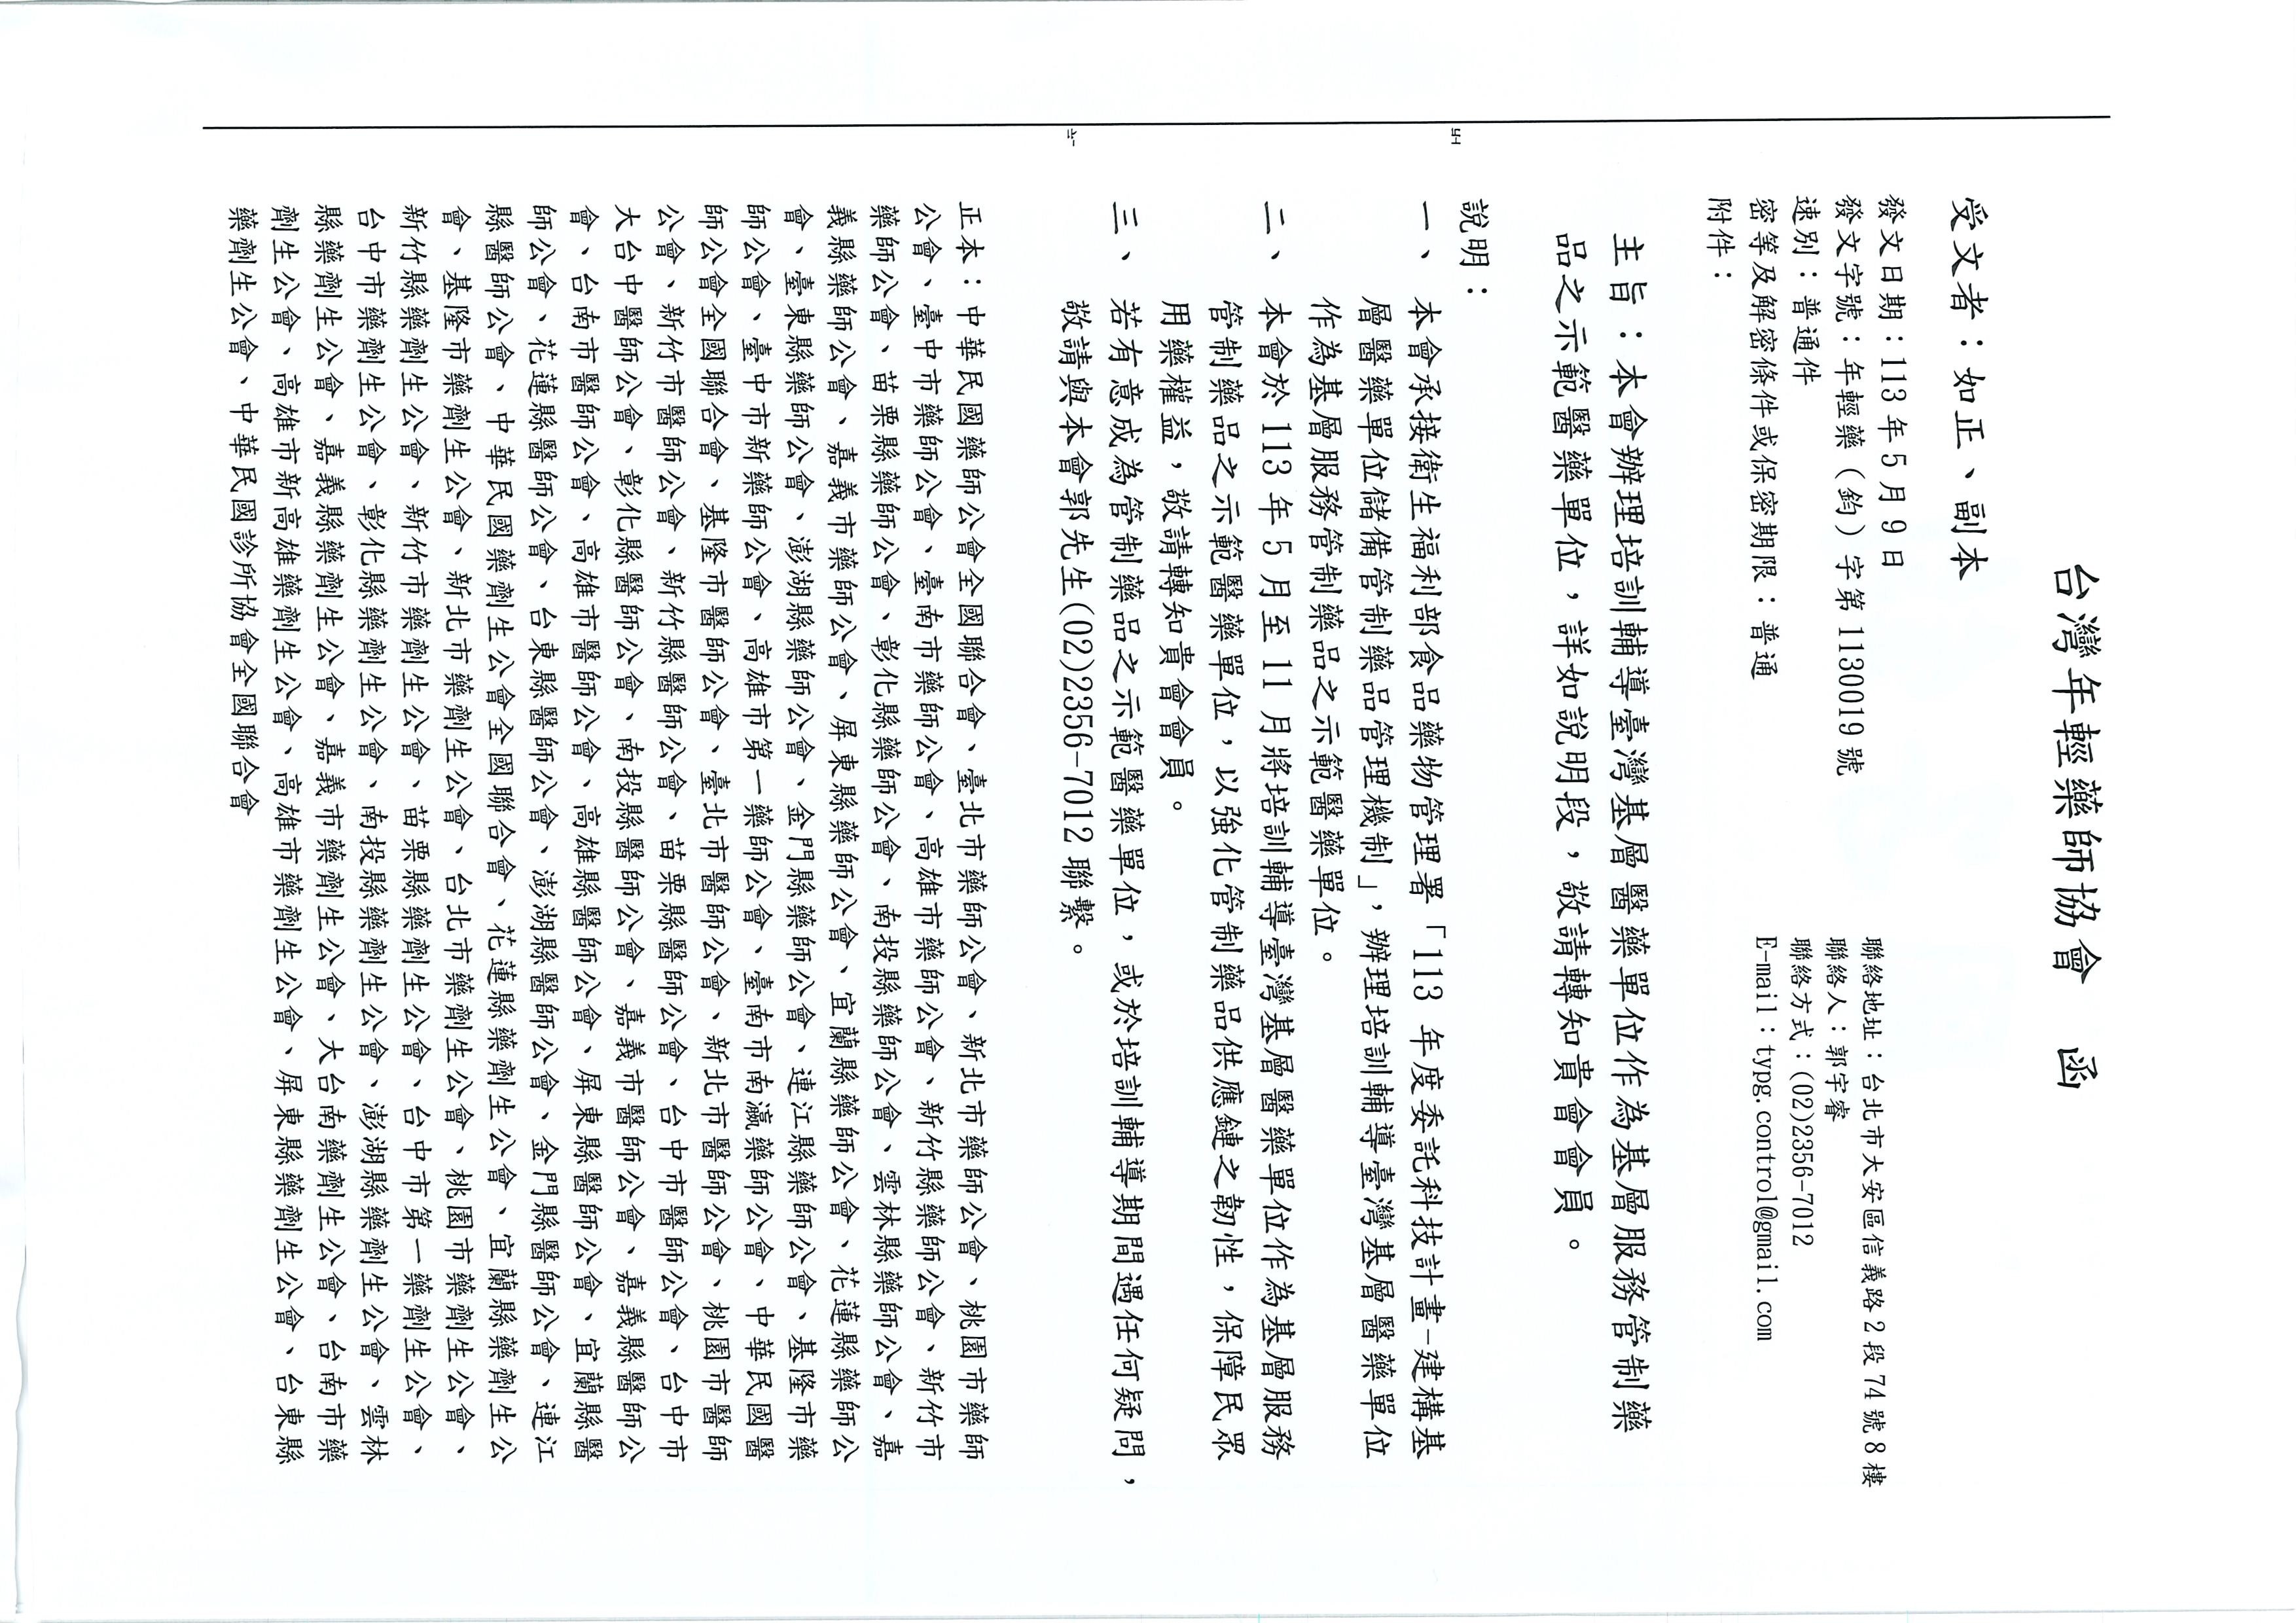 台灣年輕藥師協會　函
聯絡地址：台北市大安區信義路 2 段 74 號 8 樓
聯絡人：郭宇睿
聯絡方式：(02)2356-7012
E-mail：typg.control@gmail.com
受文者：如正、副本
發文日期：113 年 5 月 9 日
發文字號：年輕藥（鈞）字第 1130019 號
速別：普通件
密等及解密條件或保密期限：普通
附件：
主旨：本會辦理培訓輔導臺灣基層醫藥單位作為基層服務管制藥
品之示範醫藥單位，詳如說明段，敬請轉知貴會會員。
說明：
一、本會承接衛生福利部食品藥物管理署「113 年度委託科技計畫-建構基
層醫藥單位儲備管制藥品管理機制」，辦理培訓輔導臺灣基層醫藥單位
作為基層服務管制藥品之示範醫藥單位。
二、本會於 113 年 5 月至 11 月將培訓輔導臺灣基層醫藥單位作為基層服務
管制藥品之示範醫藥單位，以強化管制藥品供應鏈之韌性，保障民眾
用藥權益，敬請轉知貴會會員。
三、若有意成為管制藥品之示範醫藥單位，或於培訓輔導期間遇任何疑問，
敬請與本會郭先生(02)2356-7012 聯繫。
正本：中華民國藥師公會全國聯合會、臺北市藥師公會、新北市藥師公會、桃園市藥師
公會、臺中市藥師公會、臺南市藥師公會、高雄市藥師公會、新竹縣藥師公會、新竹市
藥師公會、苗栗縣藥師公會、彰化縣藥師公會、南投縣藥師公會、雲林縣藥師公會、嘉
義縣藥師公會、嘉義市藥師公會、屏東縣藥師公會、宜蘭縣藥師公會、花蓮縣藥師公
會、臺東縣藥師公會、澎湖縣藥師公會、金門縣藥師公會、連江縣藥師公會、基隆市藥
師公會、臺中市新藥師公會、高雄市第一藥師公會、臺南市南瀛藥師公會、中華民國醫
師公會全國聯合會、基隆市醫師公會、臺北市醫師公會、新北市醫師公會、桃園市醫師
公會、新竹市醫師公會、新竹縣醫師公會、苗栗縣醫師公會、台中市醫師公會、台中市
大台中醫師公會、彰化縣醫師公會、南投縣醫師公會、嘉義市醫師公會、嘉義縣醫師公
會、台南市醫師公會、高雄市醫師公會、高雄縣醫師公會、屏東縣醫師公會、宜蘭縣醫
師公會、花蓮縣醫師公會、台東縣醫師公會、澎湖縣醫師公會、金門縣醫師公會、連江
縣醫師公會、中華民國藥劑生公會全國聯合會、花蓮縣藥劑生公會、宜蘭縣藥劑生公
會、基隆市藥劑生公會、新北市藥劑生公會、台北市藥劑生公會、桃園市藥劑生公會、
新竹縣藥劑生公會、新竹市藥劑生公會、苗栗縣藥劑生公會、台中市第一藥劑生公會、
台中市藥劑生公會、彰化縣藥劑生公會、南投縣藥劑生公會、澎湖縣藥劑生公會、雲林
縣藥劑生公會、嘉義縣藥劑生公會、嘉義市藥劑生公會、大台南藥劑生公會、台南市藥
劑生公會、高雄市新高雄藥劑生公會、高雄市藥劑生公會、屏東縣藥劑生公會、台東縣
藥劑生公會、中華民國診所協會全國聯合會